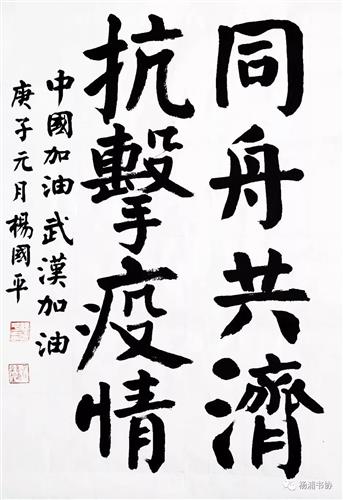 同舟共濟
抗擊疫情
中國加油武漢加油
庚子元月楊國平
杨浦书协